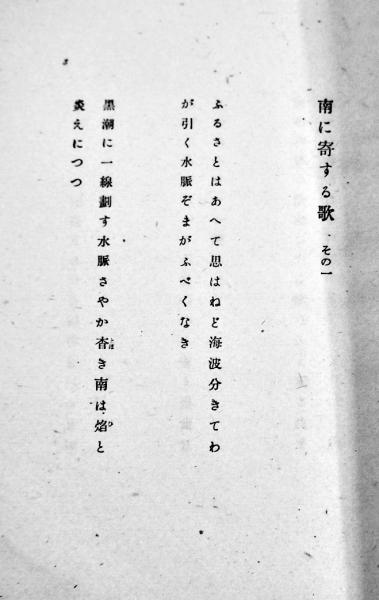 南に寄する歌 その一
ふるさとはあへて思はねど海波分きてわ
が引く水脈ぞまがふべくなき
黒潮に一線劃す水脈さやか杳き南は焰と
炎えにつつ